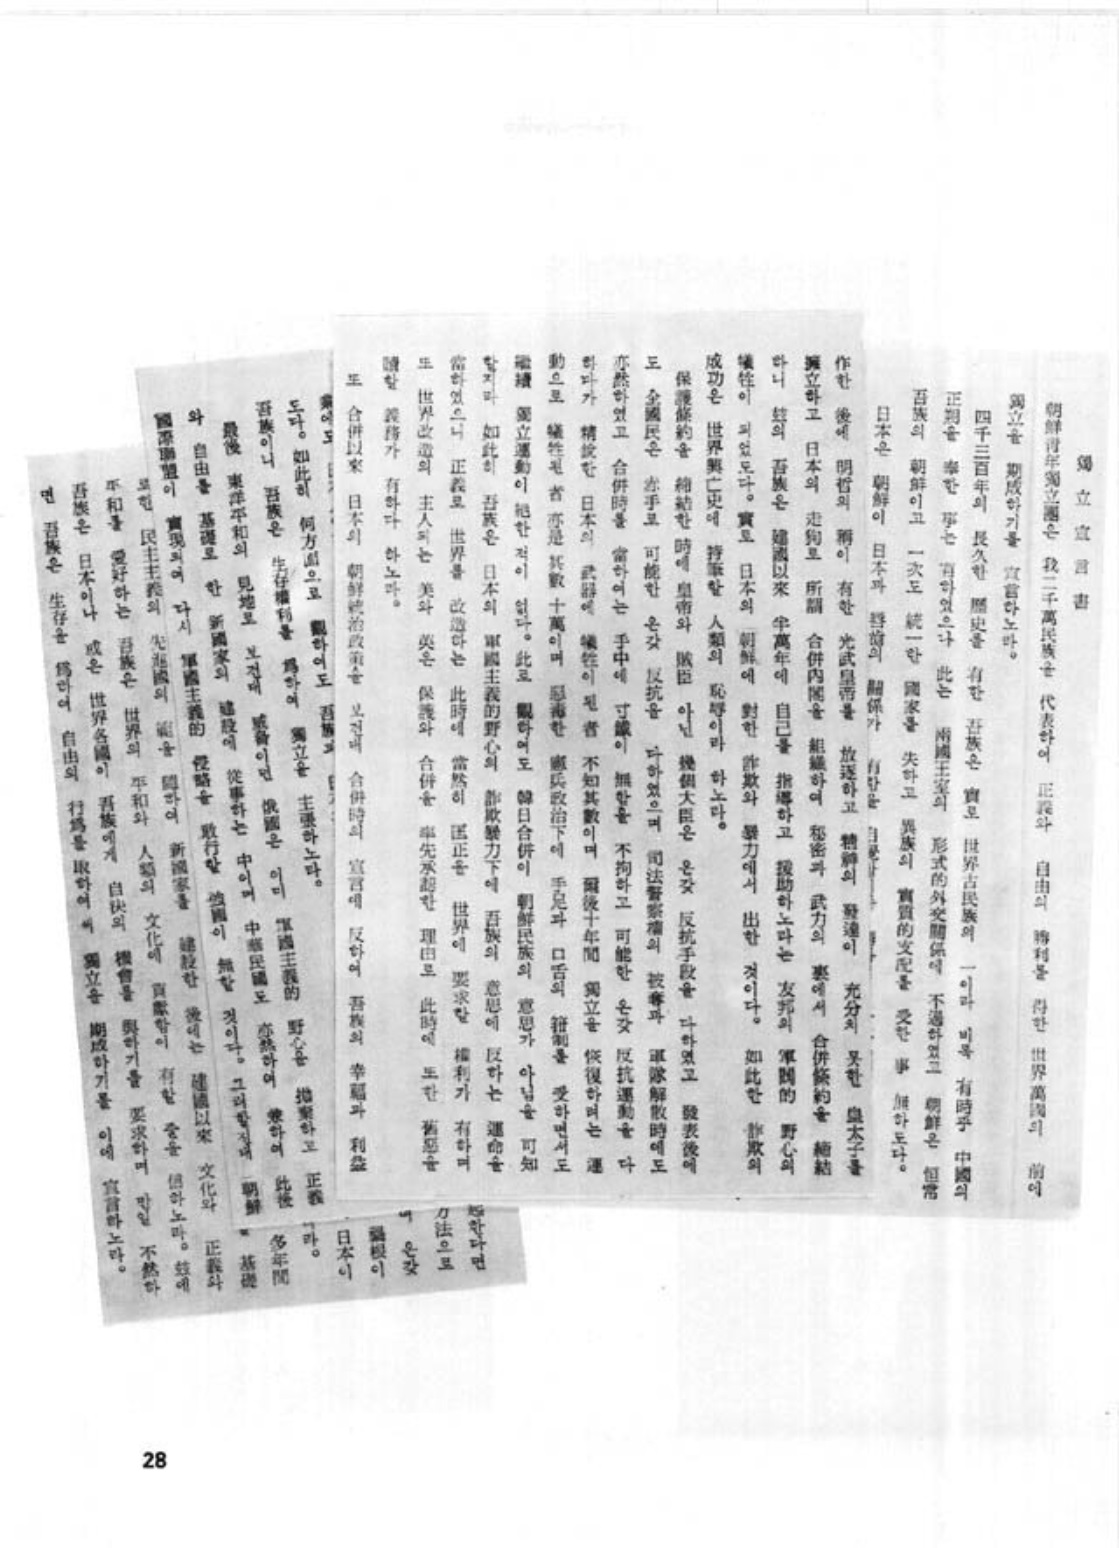 獨立宣言書
朝鮮靑年獨立團은 我二千萬民族을 代表하여 正義와 自由의 勝利를 得한 世界萬國의 前에
獨立을 期成하기를 宣言하노라。
四千三百年의 長久한 歷史를 有한 吾族은 實로 世界古民族의 一이라 비록 有時乎 中國의
正朔을 奉한 事는 有하였으나 此는 兩國王室의 形式的外交關係에 不過하였고 朝鮮은 恒常
吾族의 朝鮮이고 一次도 統一한 國家를 失하고 異族의 實質的支配를 受한 事 無하도다。
日本은 朝鮮이 日本과 唇齒의 關係가 有함을
作한 後에 明哲의 稱이 有한 光武皇帝를 放逐하고 精神의 發達이 充分치 못한 皇太子를
擁立하고 日本의 走狗로 所謂 合併內閣을 組織하여 秘密과 武力의 裏에서 合併條約을 締結
하니 玆의 吾族은 建國以來 半萬年에 自己를 指導하고 援助하노라는 友邦의 軍閥的 野心의
犧牲이 되었도다。實로 日本의 朝鮮에 對한 詐欺와 暴力에서 出한 것이다。如此한 詐欺의
成功은 世界興亡史에 特筆할 人類의 恥辱이라 하노라。
保護條約을 締結한 時에 皇帝와 賊臣 아닌 幾個大臣은 온갖 反抗手段을 다하였고 發表後에
도 全國民은 赤手로 可能한 온갖 反抗을 다하였으며 司法警察權의 被奪과 軍隊解散時에도
亦然하였고 合併時를 當하여는 手中에 寸鐵이 無함을 不拘하고 可能한 온갖 反抗運動을 다
하다가 精銳한 日本의 武器에 犧牲이 된 者 不知其數이며 爾後十年間 獨立을 恢復하려는 運
動으로 犧牲된 者 亦是 其數 十萬이며 惡毒한 憲兵政治下에 手足과 口舌의 箝制를 受하면서도
繼續 獨立運動이 絶한 적이 없다。此로 觀하여도 韓日合併이 朝鮮民族의 意思가 아님을 可知
할지라 如此히 吾族은 日本의 軍國主義的野心의 詐欺暴力下에 吾族의 意思에 反하는 運命을
當하였으니 正義로 世界를 改造하는 此時에 當然히 匡正을 世界에 要求할 權利가 有하며
또 世界改造의 主人되는 美와 英은 保護와 合併을 率先承認한 理由로 此時에 또한 舊惡을
贖할 義務가 有하다 하노라。
또 合併以來 日本의 朝鮮統治政策을 보건대 合併時의 宣言에 反하여 吾族의 幸福과 利益
도다。如此히 何方面으로 觀하여도 吾族과
吾族이니 吾族은 生存權利를 爲하여 獨立을 主張하노라。
最後 東洋平和의 見地로 보건대 威脅이던 俄國은 이미 軍國主義的 野心을 抛棄하고 正義
와 自由를 基礎로 한 新國家의 建設에 從事하는 中이며 中華民國도 亦然하며 兼하여 此後
國際聯盟이 實現되여 다시 軍國主義的 侵略을 敢行할 强國이 無할 것이다。그러할진대 朝鮮
起한다면
方法으로
며 온갖
禍根이
日本이
라。
多年間
基礎
또한 民主主義의 先進國의 範을 隨하여 新國家를 建設한 後에는 建國以來 文化와 正義와
平和를 愛好하는 吾族은 世界의 平和와 人類의 文化에 貢獻함이 有할 줄을 信하노라。玆에
吾族은 日本이나 或은 世界各國이 吾族에게 自決의 機會를 與하기를 要求하며 만일 不然하
면 吾族은 生存을 爲하여 自由의 行爲를 取하여써 獨立을 期成하기를 이에 宣言하노라。
28